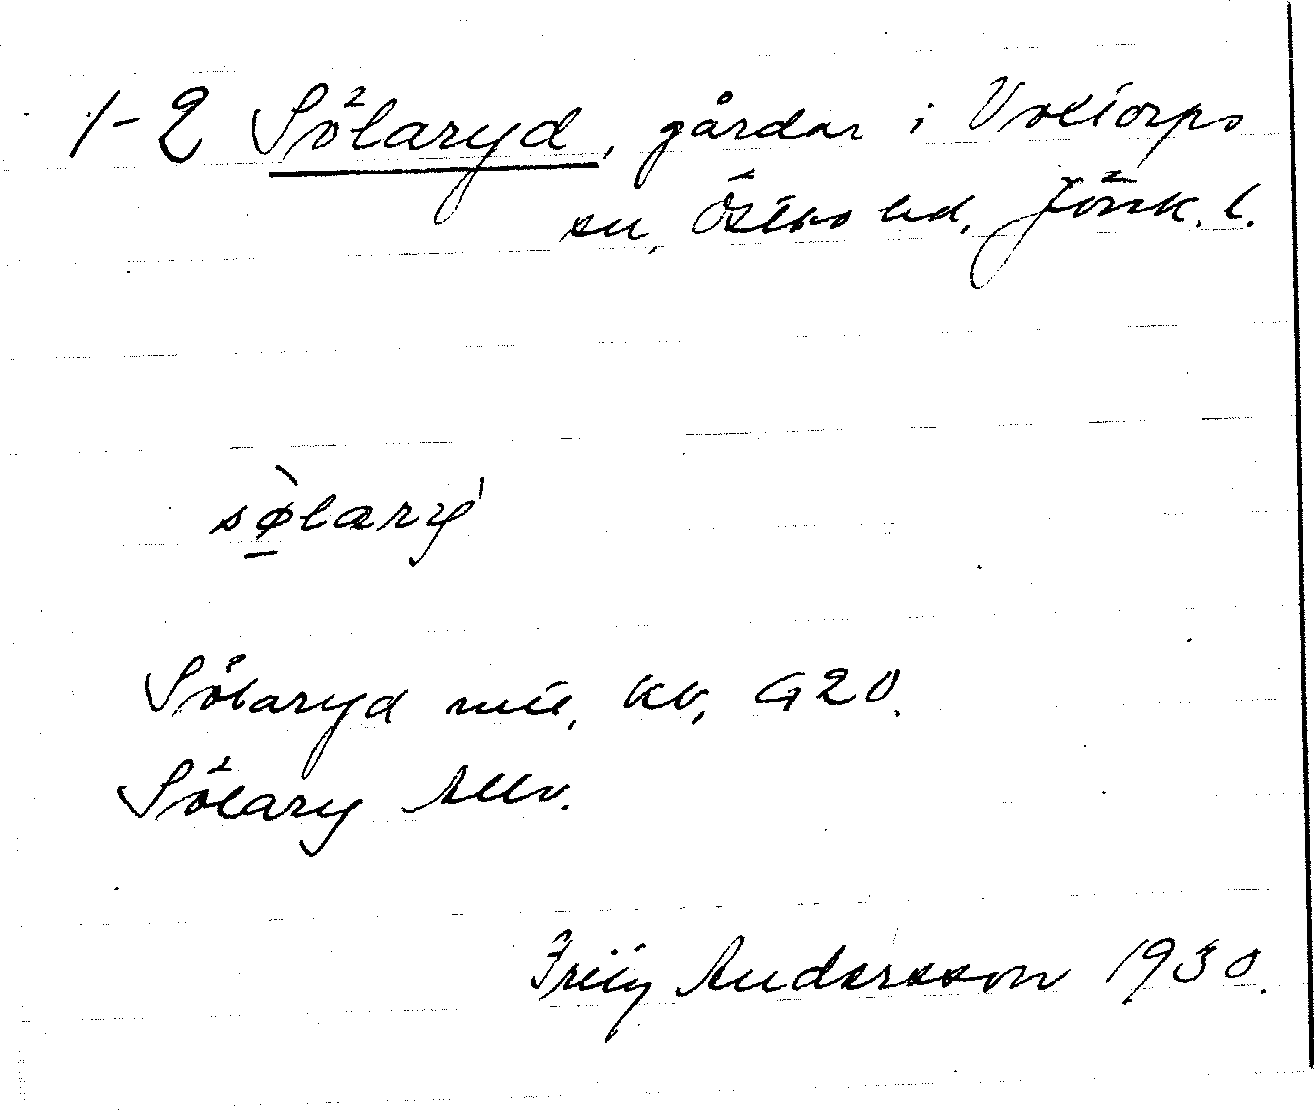 1-2 Sölaryd, gårdar i Voxtorps
sn, Östbo hd, Jönk. l.
sø̀lary'
Sölaryd mtl, kb, G20.
Sölary Allm.
Frity Andersson 1930.